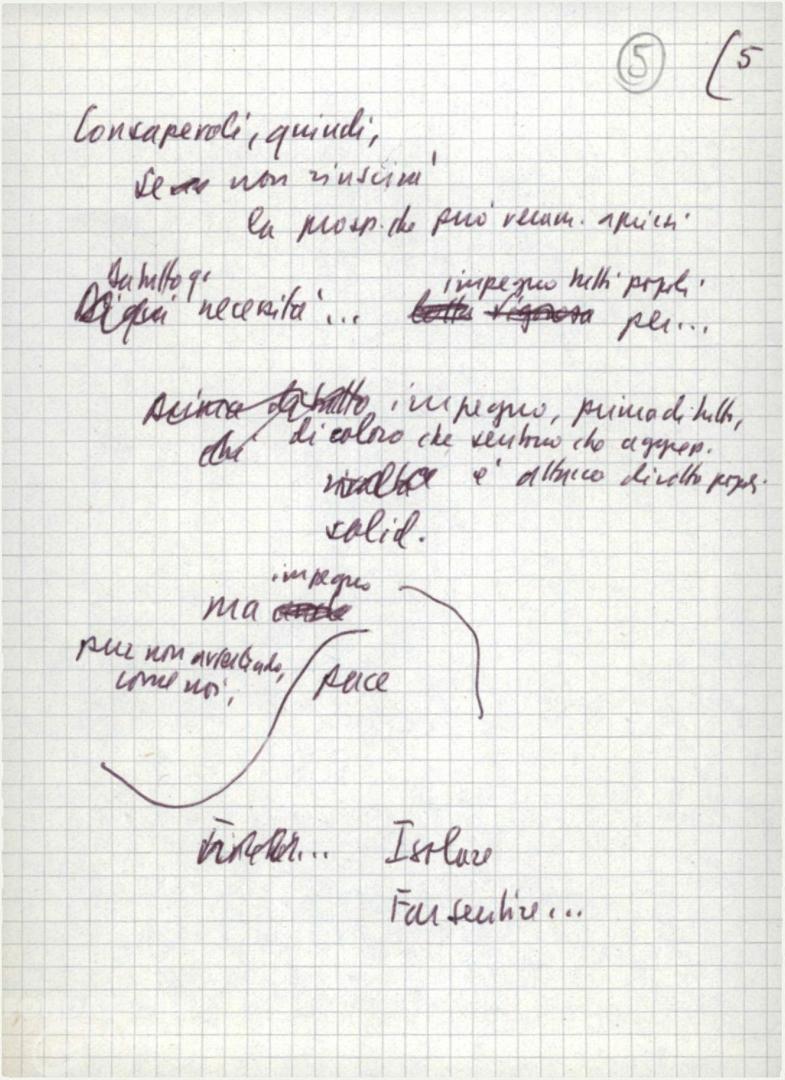 5 (5
Consapevoli, quindi,
se non riuscirà
la prosp. che può veram. aprirsi
Da tutto q.
Di qui necessità... impegno tutti popoli
lotta rigorosa per...
prima di tutto impegno, prima di tutto,
di coloro che sentono che aggress.
è attacco diritto popoli
solid.
impegno
ma
pur non
come noi,
pace
Isolare
Far sentire...